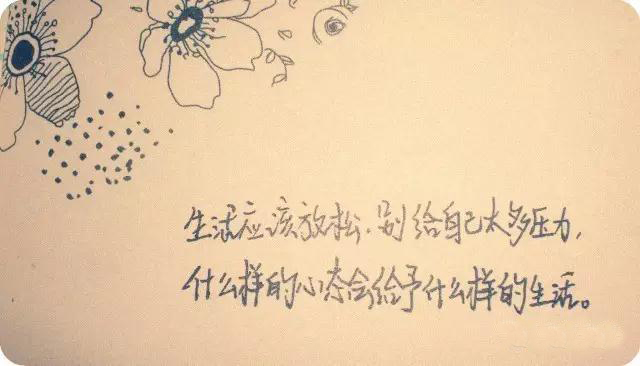 生活应该放松.别给自己太多压力,
什么样的心态会给予什么样的生活。